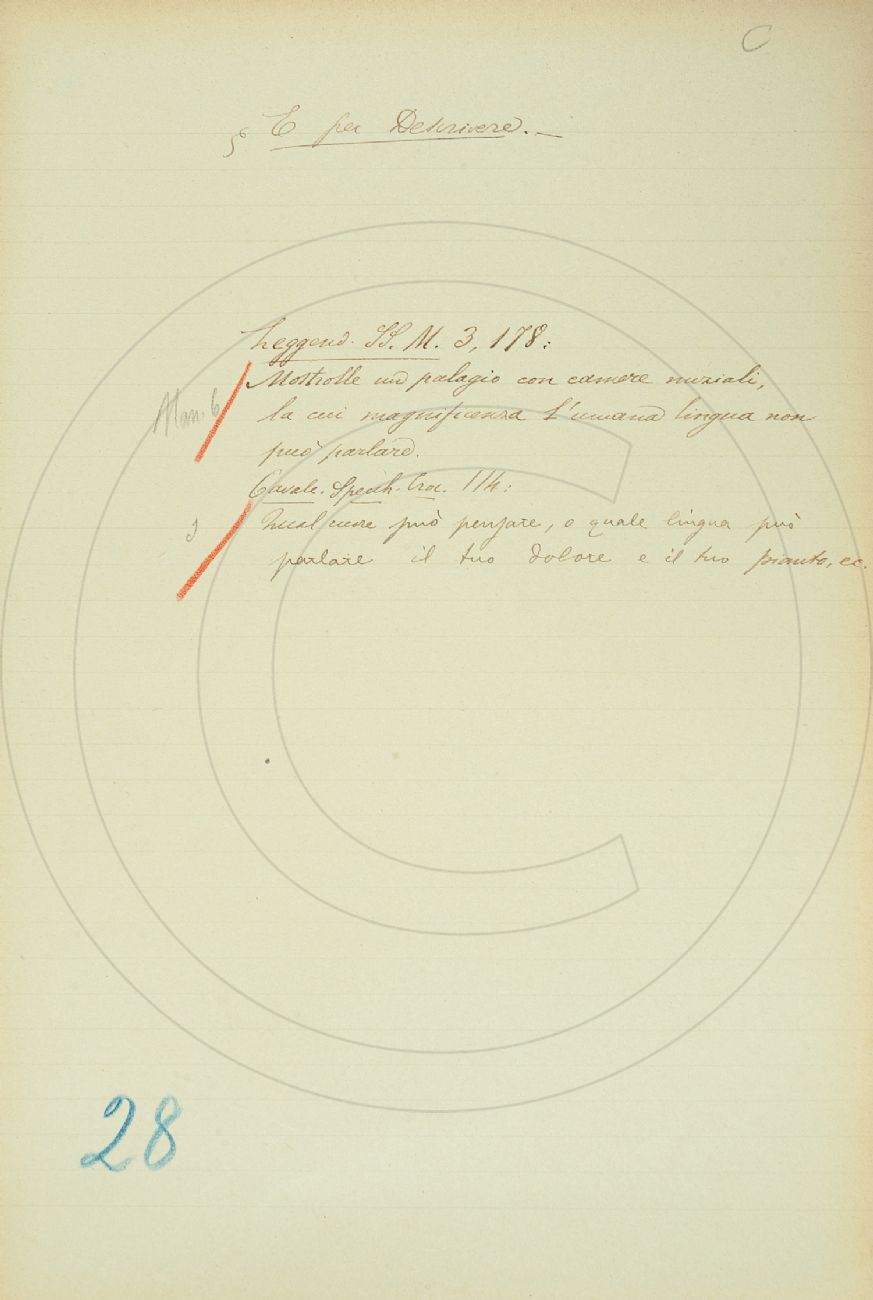 C
§ E per Descrivere. —
Leggend. SS. M. 3, 178:
Mostrolle un palagio con camere nuziali,
Man. 6
la cui magnificenza l'umana lingua non
può parlare.
Cavalc. Specch. Croc. 114:
Qual cuore può pensare, o quale lingua può
parlare il tuo dolore e il tuo pianto, ec.
28